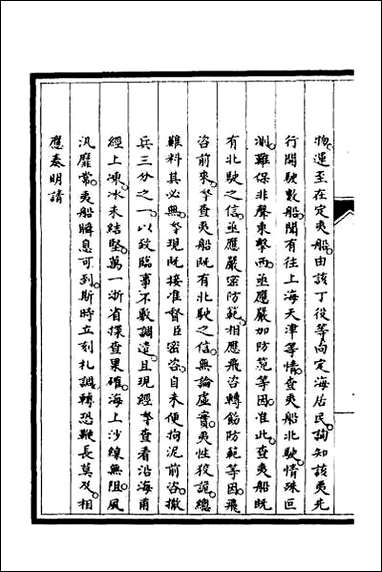 物運至在定夷船由該丁役等向定海居民詢知該夷先
行開駛數船聞有往上海天津等情查夷船北駛情殊叵
測難保非聲東擊西亟應嚴加防範等因准此查夷船既
有北駛之信亟應嚴密防範相應飛咨轉飭防範等因飛
咨前來卑查夷船既有北駛之信無論虛實夷性狡詭總
難料其必無卑現既接准督臣密咨自未便拘泥前咨撤
兵三分之一以致臨事不敷調遣且現經卑查看沿海甫
經上凍冰未結堅萬一浙省探查果確海上沙線無阻風
汛靡常夷船瞬息可到斯時立刻札調轉恐鞭長莫及相
應奏明請